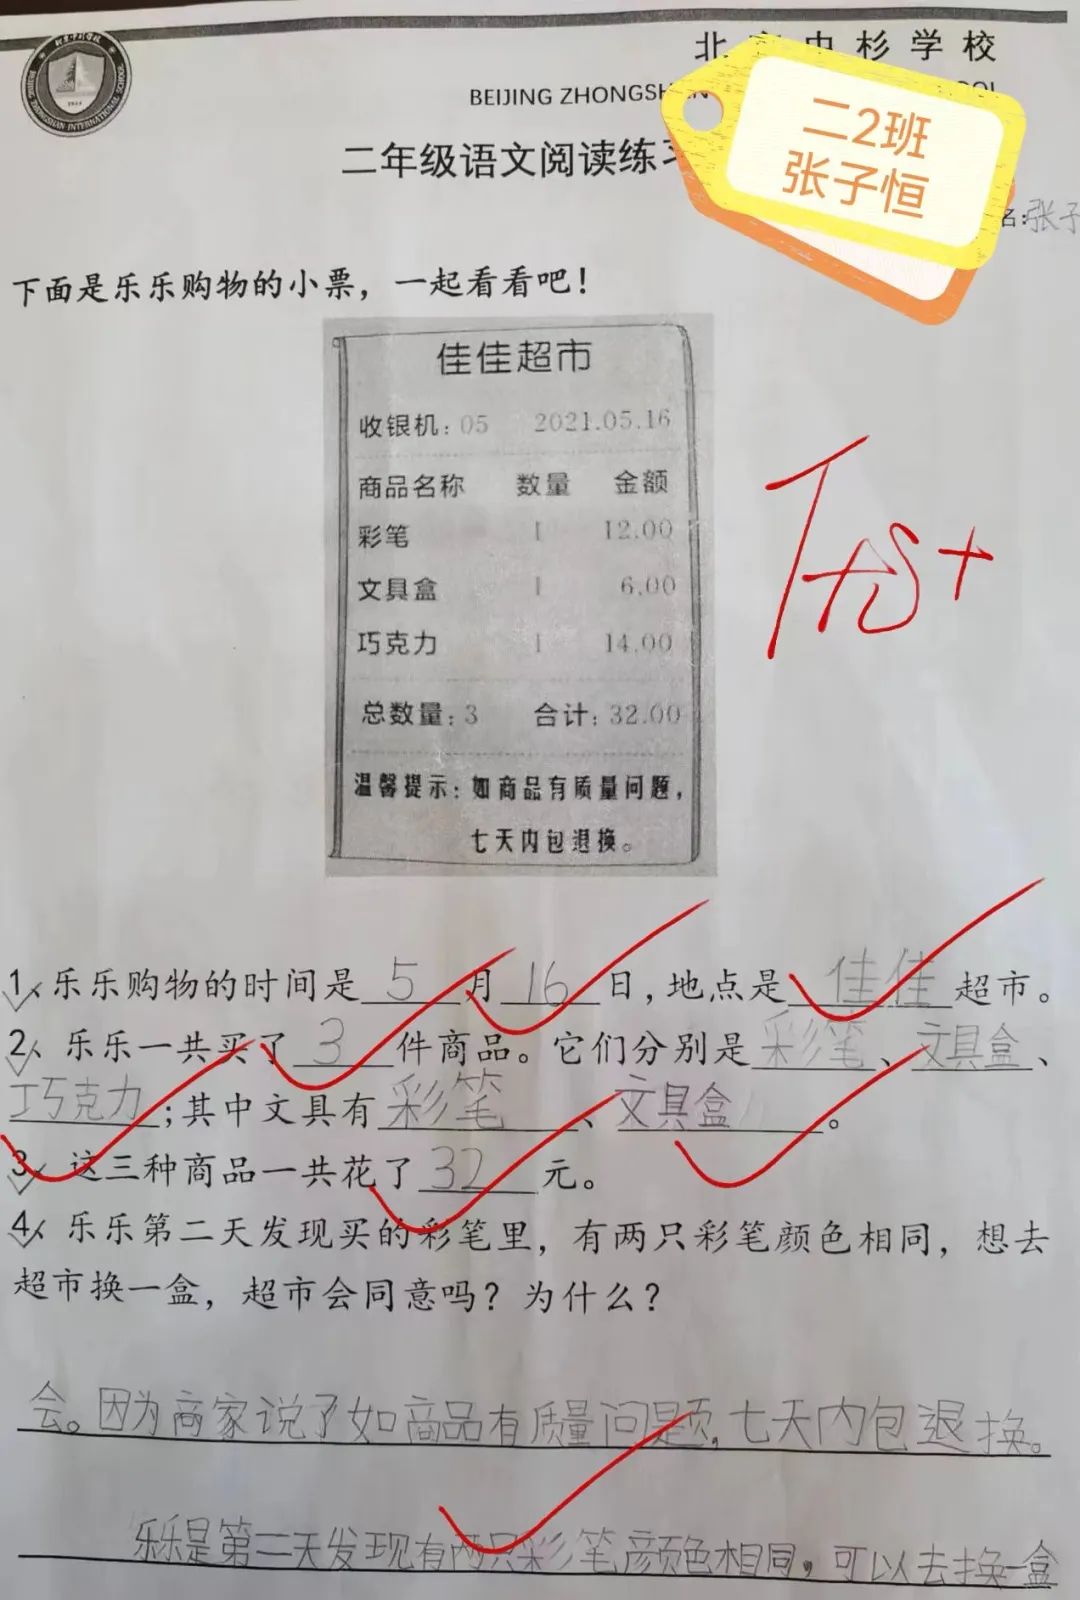 北京中杉学校
BEIJING ZHONGSH
二年级语文阅读练习
二2班
张子恒
名:张子
下面是乐乐购物的小票，一起看看吧！
佳佳超市
收银机:05 2021.05.16
商品名称 数量 金额
彩笔 1 12.00
文具盒 1 6.00
巧克力 1 14.00
总数量:3 合计:32.00
温馨提示:如商品有质量问题，
七天内包退换。
1、乐乐购物的时间是5月16日，地点是佳佳超市。
2、乐乐一共买了3件商品。它们分别是彩笔、文具盒、
巧克力;其中文具有彩笔、文具盒。
3、这三种商品一共花了32元。
4、乐乐第二天发现买的彩笔里，有两只彩笔颜色相同，想去
超市换一盒，超市会同意吗？为什么？
会。因为商家说了如商品有质量问题,七天内包退换。
乐乐是第二天发现有两只彩笔颜色相同，可以去换一盒